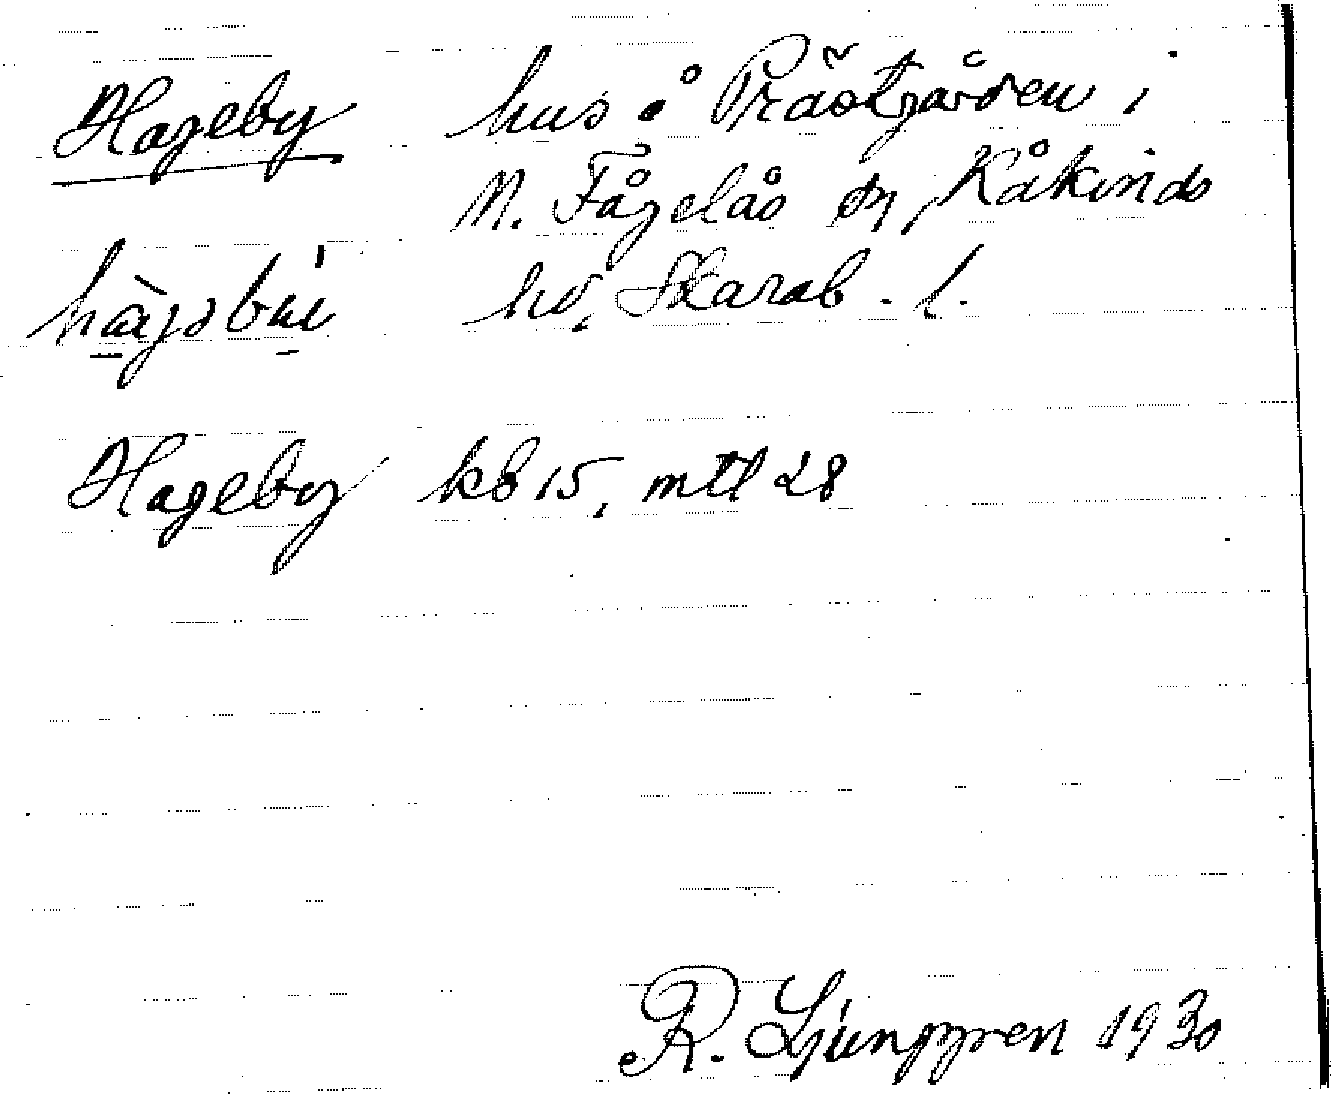 Hageby hus å Prästgården i
N. Fågelås sn, Kåkinds
hd, Skarab. l.
Hageby kb 15, mtl 28
R. Ljunggren 1930